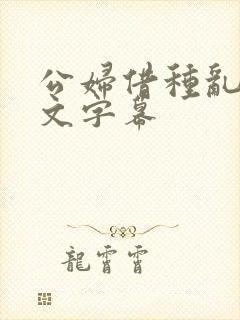 公婦借種亂
文字幕
龍霄霄